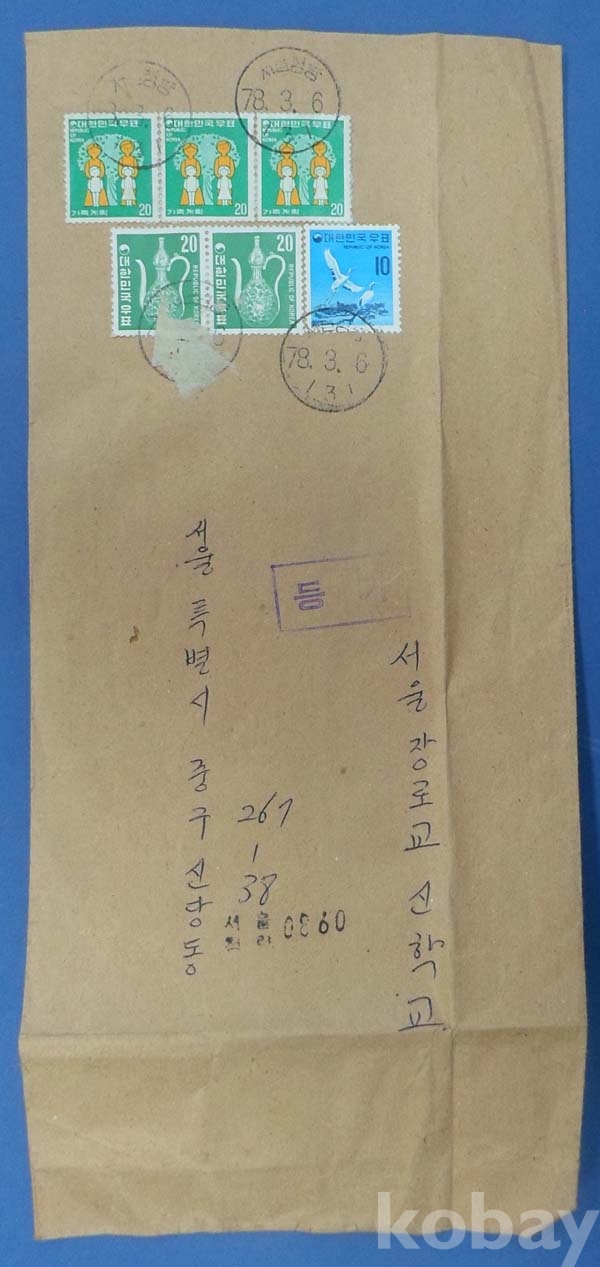 서울청량
78.3.6
대한민국우표
REPUBLIC OF KOREA
가족계획
20
대한민국우표
REPUBLIC OF KOREA
가족계획
20
대한민국우표
REPUBLIC OF KOREA
가족계획
20
20
대한민국우표
20
대한민국우표
REPUBLIC OF KOREA
대한민국우표
REPUBLIC OF KOREA
10
78.3.6
등
서울특별시 중구 신당동
267-38
서울 장로교 신학교
서울
0860
kobay